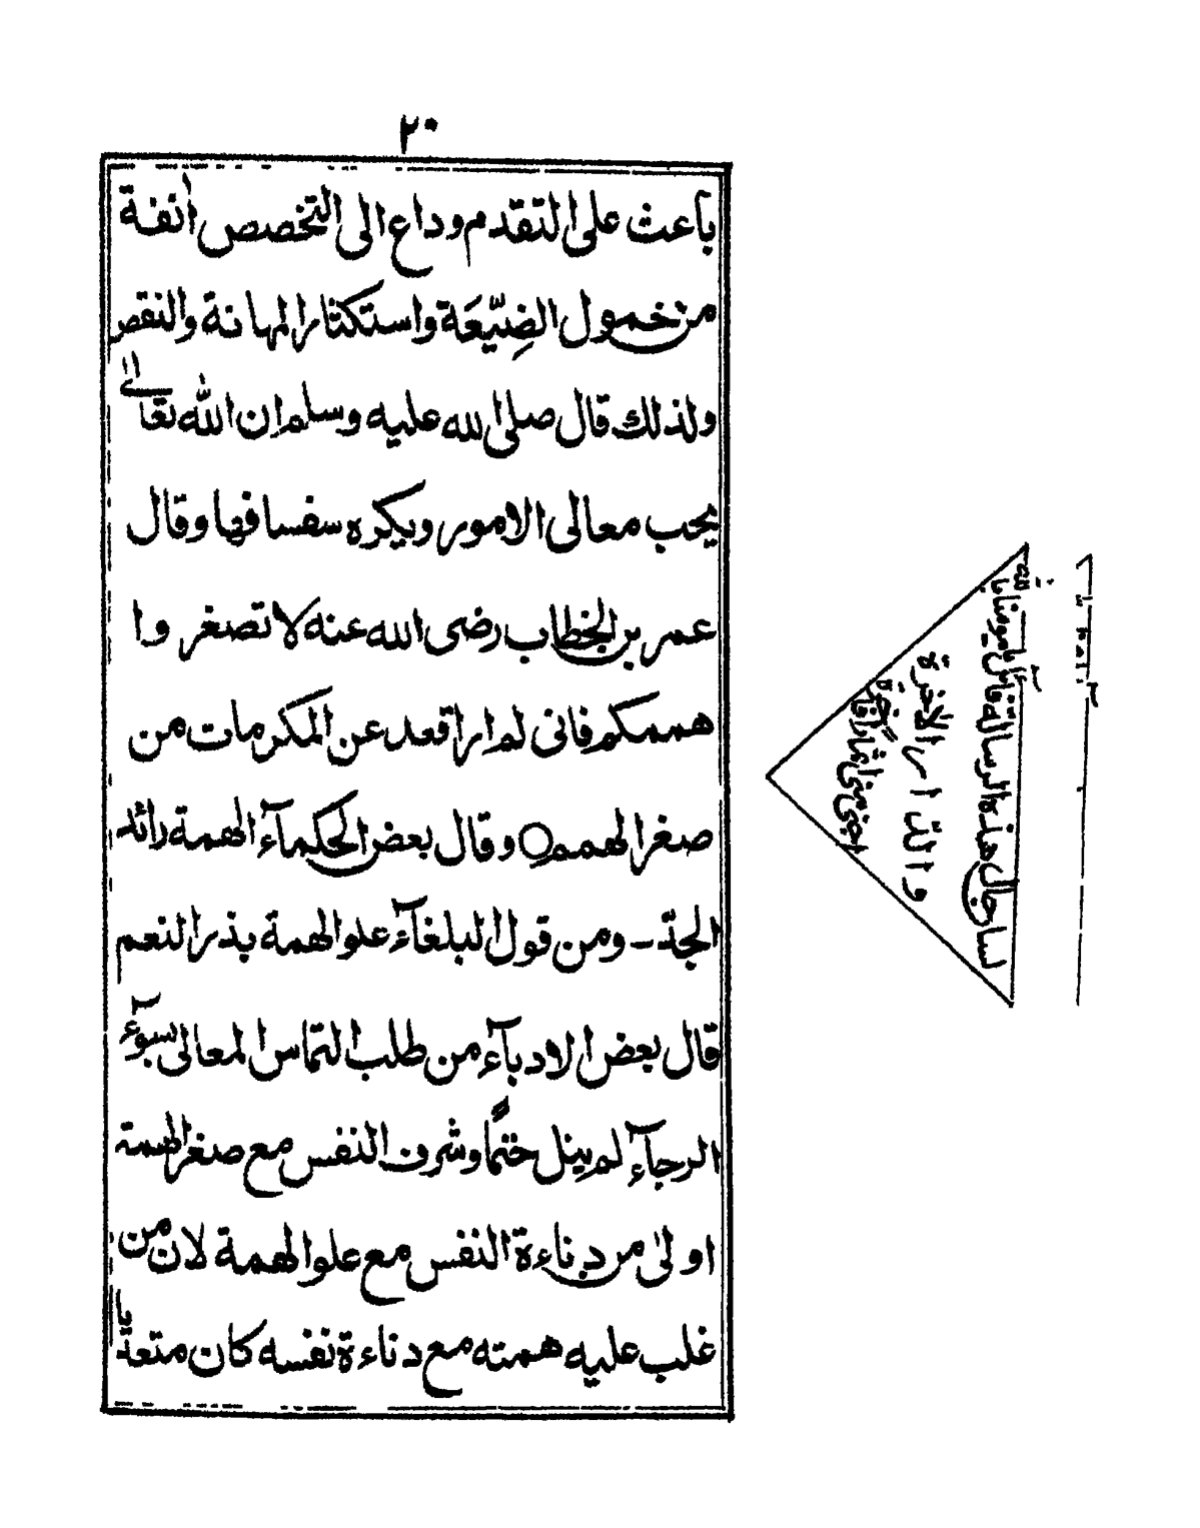 ٢٠
باعث على التقدم وداع الى التخصص أنفة
من خمول الضِيّعَة واستكثارالمهانة والنقص
ولذلك قال صلى الله عليه وسلم ان الله تعالىٰ
يحب معالى الامور ويكره سفسافها وقال
عمر بن الخطاب رضى الله عنه لا تصغر وا
هممكم فانى لم ار اقعد عن المكرمات من
صغر الهمم ○ وقال بعض الحكمآء الهمة رائد
الجدّ ـ ومن قول البلغآء علو الهمة بذر النعم
قال بعض الادبآء من طلب التماس المعالى بسوٓء
الرجآء لم ينل ختمًا وشرف النفس مع صغر الهمة
اولىٰ من دناءة النفس مع علو الهمة لان من
غلب عليه همته مع دناءة نفسه كان متعدّيا
هذه الرسالة
و الدار الاخرة